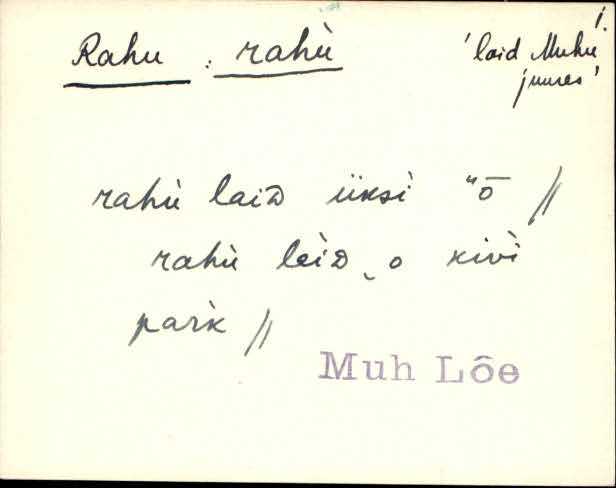 1.
Rahu : rahù 'laid Muhu
juures'
rahù laiD üksì "ō //
rahù lèiD o kivì
pàrk //
Muh Lõe